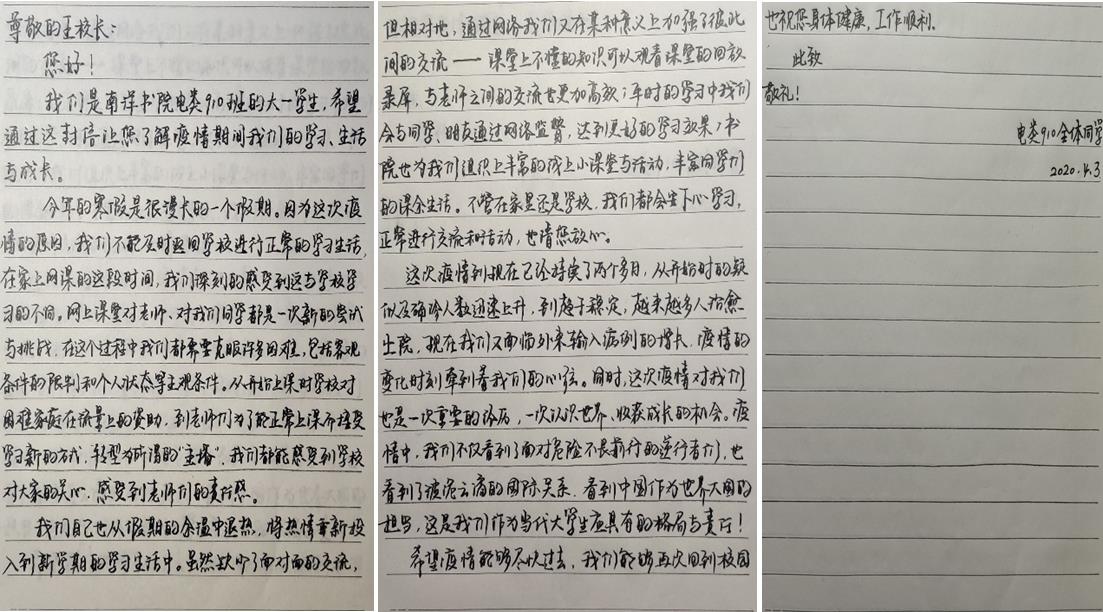 尊敬的王校长：
您好！
我们是南洋书院电类910班的大一学生，希望
通过这封信让您了解疫情期间我们的学习、生活
与成长。
今年的寒假是很漫长的一个假期。因为这次疫
情的原因，我们不能及时返回学校进行正常的学习生活，
在家上网课的这段时间，我们深刻的感受到这与学校学
习的不同。网上课堂对老师、对我们同学都是一次新的尝试
与挑战，在这个过程中我们都需要克服许多困难，包括客观
条件的限制和个人状态等主观条件。从开始上课时学校对
困难家庭在流量上的资助，到老师们为了能正常上课而接受
学习新的方式，转型为所谓的“主播”，我们都能感受到学校
对大家的关心，感受到老师们的责任感。
我们自己也从假期的余温中退热，将热情重新投
入到新学期的学习生活中。虽然缺少了面对面的交流，
但相对地，通过网络我们又在某种意义上加强了彼此
间的交流——课堂上不懂的知识可以观看课堂的回放
录屏，与老师之间的交流也更加高效；平时的学习中我们
会与同学、朋友通过网络监督，达到更好的学习效果；书
院也为我们组织上丰富的线上小课堂与活动，丰富同学们
的课余生活。不管在家里还是学校，我们都会坐下心学习，
正常进行交流和活动，也请您放心。
这次疫情到现在已经持续了两个多月，从开始时的疑
似及确诊人数迅速上升，到趋于稳定，越来越多人治愈
出院，现在我们又面临外来输入病例的增长，疫情的
变化时刻牵动着我们的心弦。同时，这次疫情对我们
也是一次重要的洗历，一次认识世界、收获成长的机会。疫
情中，我们不仅看到了面对危险不畏前行的逆行者们，也
看到了波诡云谲的国际关系，看到中国作为世界大国的
担当，这是我们作为当代大学生应具有的格局与责任！
希望疫情能够尽快过去，我们能够再次回到校园
也祝您身体健康，工作顺利。
此致
敬礼！
电类910全体同学
2020.4.3